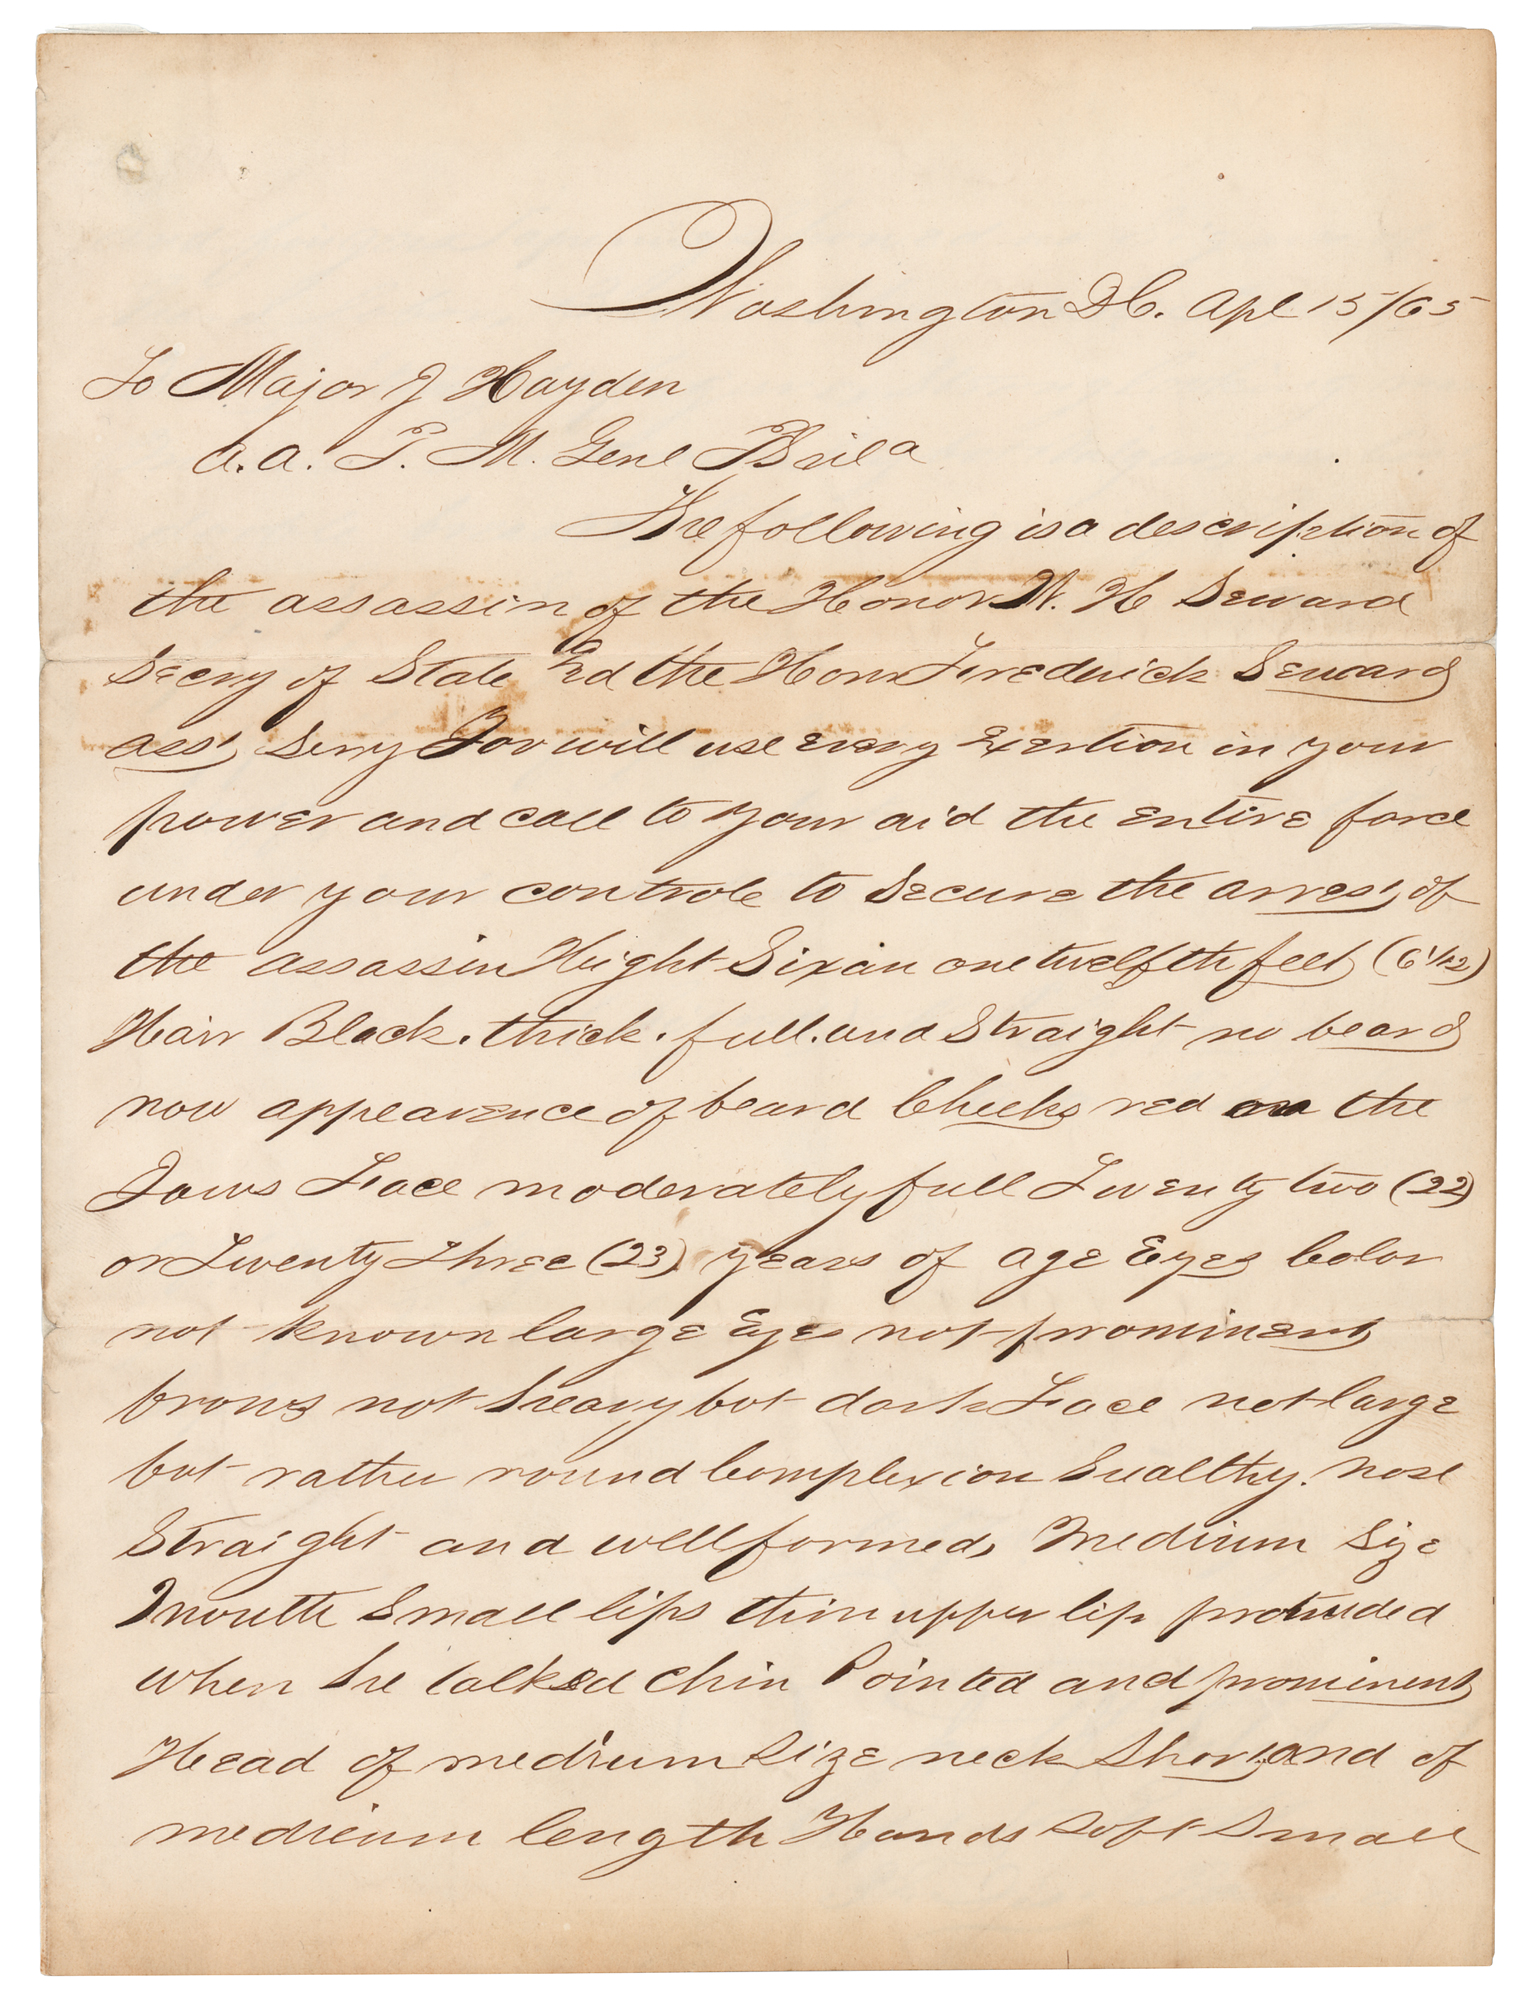 Washington D.C. Apl 15/65
To Major J Hayden
A. A. P. M. Genl Phila
The following is a description of
the assassin of the Honor W. H Seward
Secry of State and the Hon Frederick Seward
asst Secry You will use every exertion in your
power and call to your aid the entire force
under your controle to secure the arrest of
the assassin Hight Six an one twelfth feet (6 1/12)
Hair Black. thick. full. and Straight no beard
nor appearence of beard Cheeks red on the
Jaws Face moderately full Twenty two (22)
or Twenty Three (23) years of age Eyes Color
not known large Eyes not prominent
brows not heavy but dark Face not large
but rather round Complexion healthy. nose
Straight and well formed, Medium size
Mouth Small lips thin upper lip protruded
when he talked Chin Pointed and prominent
Head of medium size neck Short and of
medieum length Hands soft Small